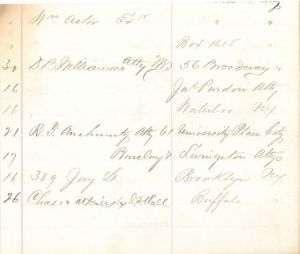 Wm Astor Exr "
" Box 1615 "
30 D. B. Williamson Atty 56 Broadway "
16 Jas Purdon Atty
16 Waterloo NY
21 R. T. Auchmuty Atty 61 University Place City
17 & Livingston Atty
16 389 Jay St. Brooklyn NY
26 Chas Hall Buffalo "